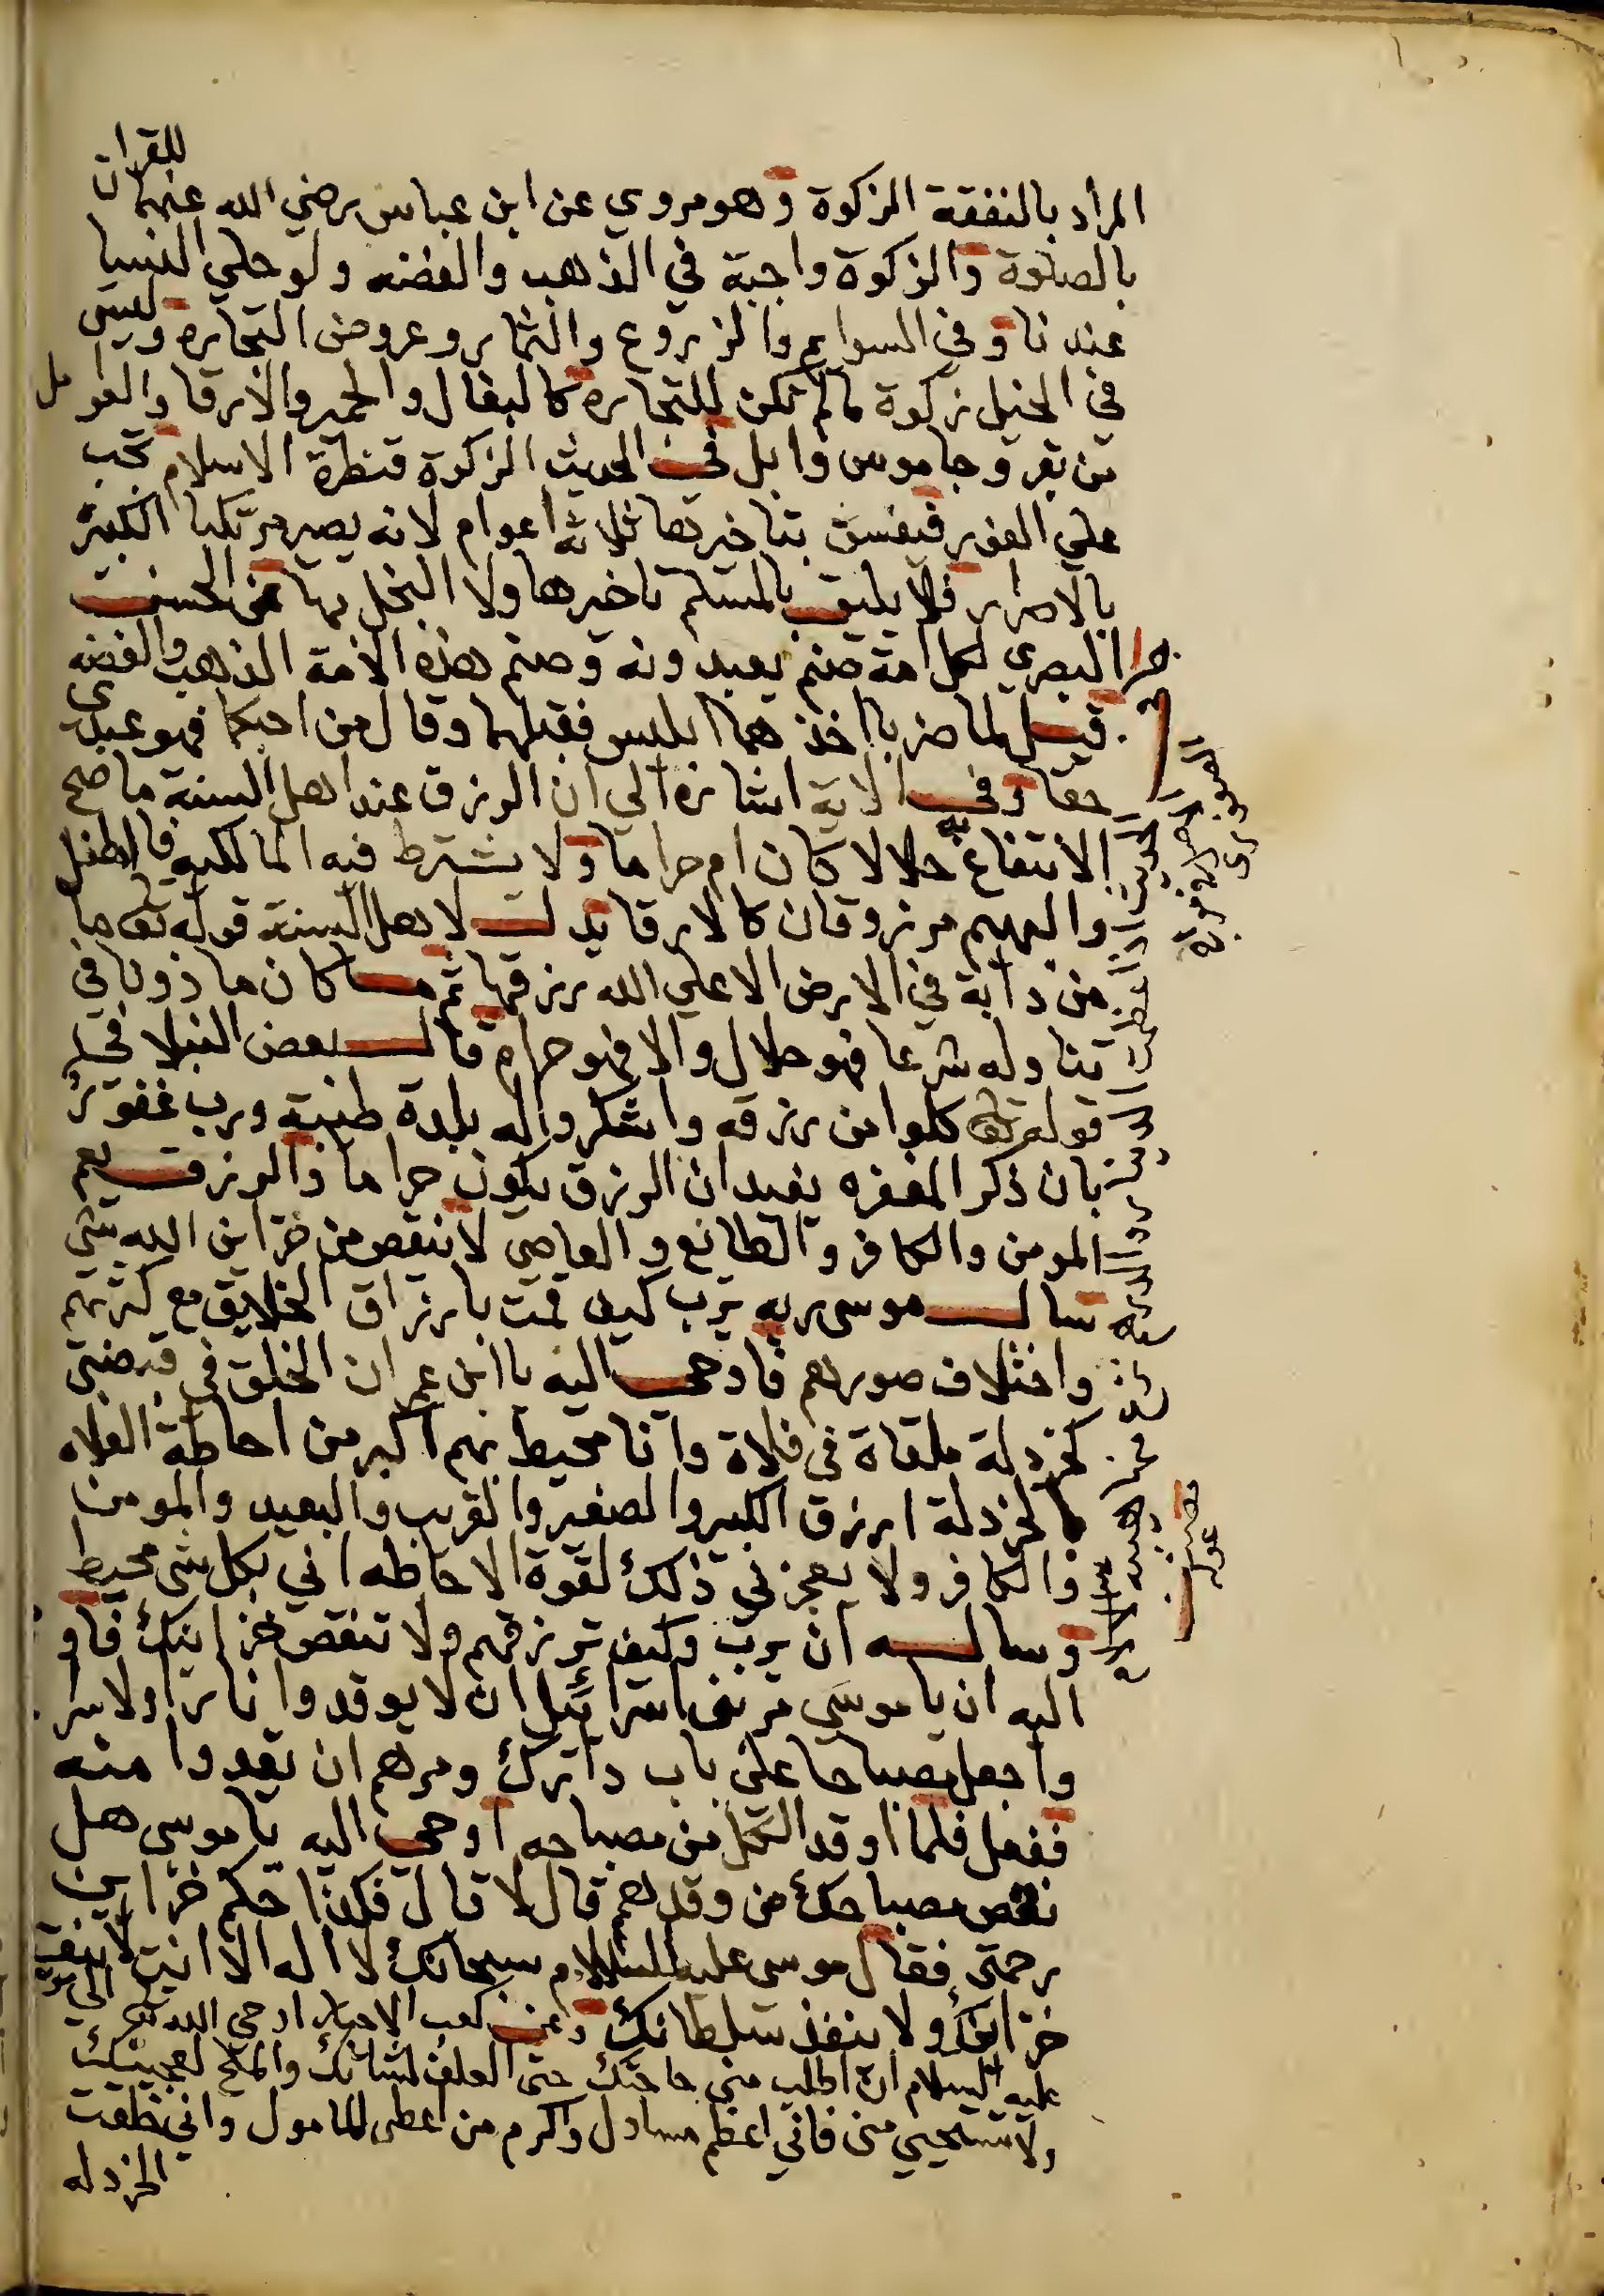 المراد بالنفقة الزكوة وهو مروي عن ابن عباس رضي الله عنهما للقران
بالصلوة والزكوة واجبة في الذهب والفضه ولو حلي النسا
عندنا وفي السوايم والزروع والثمار وعروض التجارة وليس
في الخيل زكوة ما لم تكن للتجارة كالبغال والحمر والارقا والعوامل
من بقر وجاموس وابل في الحديث الزكوة قنطرة الاسلام تجب
علي الفور فيفسق بتاخيرها ثلاثة اعوام لانه يصير مرتكبا الكبيرة
بالاصرار فلا يليق بالمسلم تاخيرها ولا البخل بها عن الحسن
البصري لكل امة صنم يعبدونه وصنم هذه الامة الذهب والفضه
قيل لما ضربا اخذهما ابليس فقبلهما وقال من احبكما فهو عبدي
حقا وفي الاية اشارة الي ان الرزق عند اهل السنة ما صح
الانتفاع به حلالا كان ام حراما ولا يشترط فيه المالكيه فالطفل
والبهيم مرزوقان كالارقا يدل لاهل السنة قوله تعالى وما
من دابة في الارض الا علي الله رزقها ثم ما كان ماذونا في
تناوله شرعا فهو حلال والا فهو حرام قال بعض النبلا في
قوله تعالى كلوا من رزقه واشكروا له بلدة طيبة ورب غفور
بان ذكر المغفره يفيد ان الرزق يكون حراما والرزق يعم
المومن والكافر والطائع والعاصي لا ينقص من خزاين الله شي
سال موسى ربه يرب كيف قمت بارزاق الخلايق مع كثرتهم
واختلاف صورهم فاوحى اليه يا ابن عمران الخلق في قبضتي
كخردلة ملقاة في فلاة وانا محيط بهم اكبر من احاطة الفلاه
بالخردلة ارزق الكبير والصغير والقريب والبعيد والمومن
والكافر ولا يعجزني ذلك لقوة الاحاطه اني بكل شي محيط
وساله ان يرب وكيف ترزقهم ولا تنقص خزاينك فاو
اليه ان يا موسى مر بني اسرائيل ان لا يوقدوا نارا ولا سرا
واجعل مصباحا على باب دارك ومرهم ان يقدوا منه
ففعل فلما اوقد الكل من مصباحه اوحي اليه يا موسى هل
نقص مصباحك من وقدهم قال لا قال فكذا حكم خزاين
رحمتي فقال موسى عليه السلام سبحانك لا اله الا انت لا ينقص
خزاينك ولا ينفذ سلطانك وعن كعب الاحبار اوحي الله تعالى الي موسى
عليه السلام ان اطلب مني حاجتك حتى العلف لشاتك والملح لعجينتك
ولا تستحيي مني فاني اعظم مسئول واكرم من اعطى المامول واني خلقت
الخردله